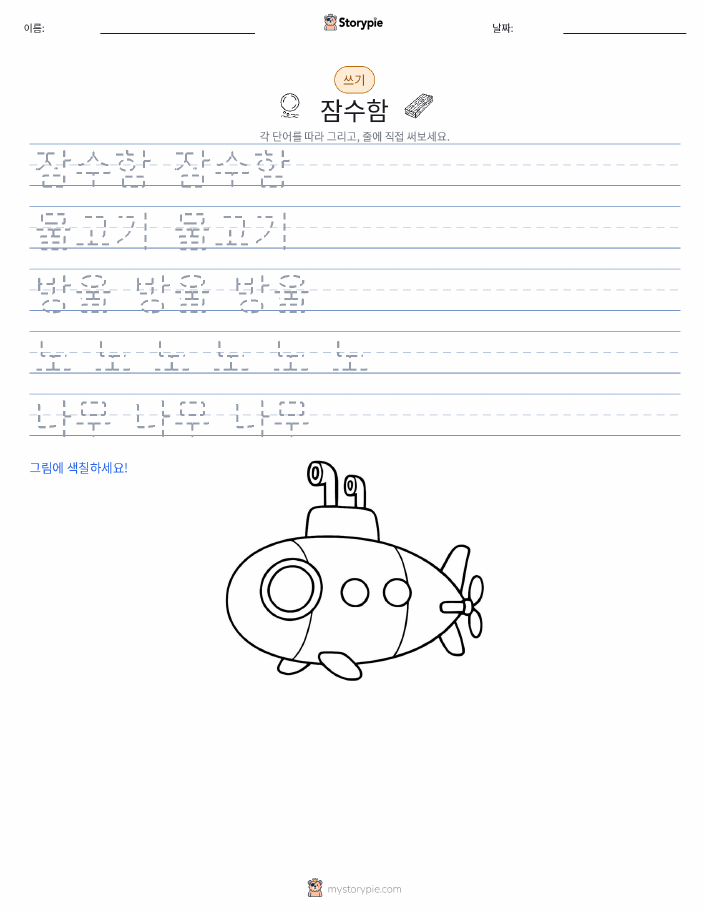 이름:
Storypie
날짜:
쓰기
잠수함
각 단어를 따라 그리고, 줄에 직접 써보세요.
잠수함 잠수함
물고기 물고기
방울 방울 방울
노 노 노 노 노 노
나무 나무 나무
그림에 색칠하세요!
mystorypie.com